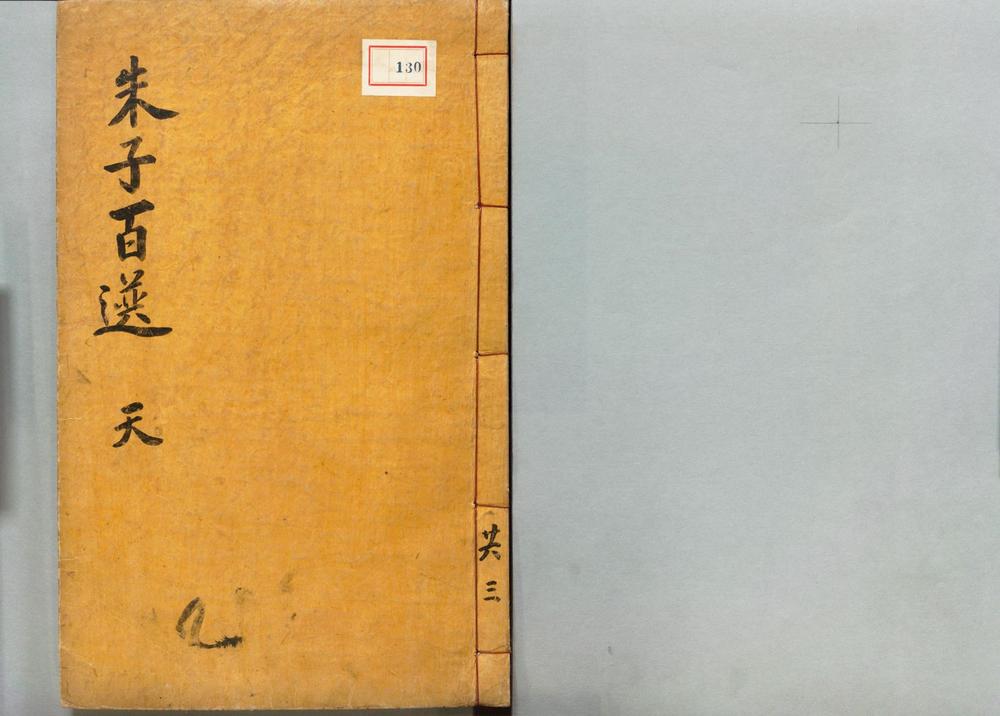 朱子百選 天
130
共三